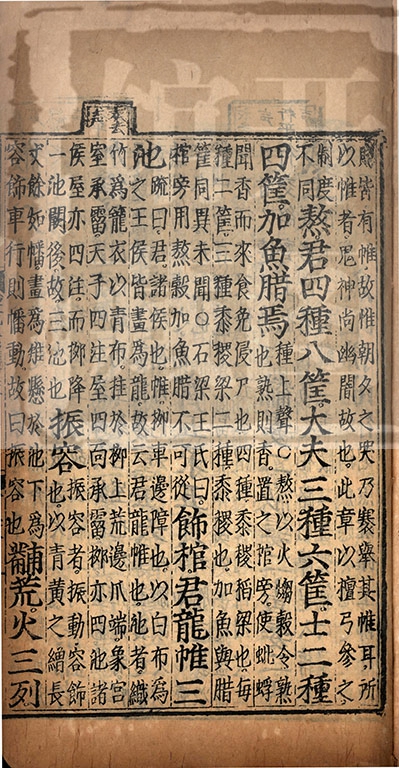 殯皆有帷故惟朝夕之哭乃褰舉其帷耳所
以帷者鬼神尚幽闇故也。此章以檀弓參之
制度
不同
熬君四種八筐。大夫三種六筐。士二種
四筐。加魚腊焉
種上聲○熬以火爤穀令熟
也熟則香。置之棺旁。使蚍蜉
聞香而來食免侵尸也四種黍稷稻粱也每
種二筐三種黍稷粱二種黍稷也。加魚與腊
筐同異未聞○石梁王氏曰。
棺旁用熬穀加魚腊不可從
飾棺君龍帷三
池
疏曰。君。諸侯也。帷。柳車邊障也。以白布為
之王侯皆畫為龍故云君龍帷也。池者織
竹為籠衣以青布。挂於柳上荒邊爪端。象宮
室承霤天子四注屋四面承霤柳亦四池諸
侯屋亦四注。而柳降
一池闕後。故三池也
振容
振容者振動容飾
也。以青黃之繒長
丈餘如幡。畫為雉懸於池下為
容飾車行則幡動。故曰振容也
黼荒。火三列